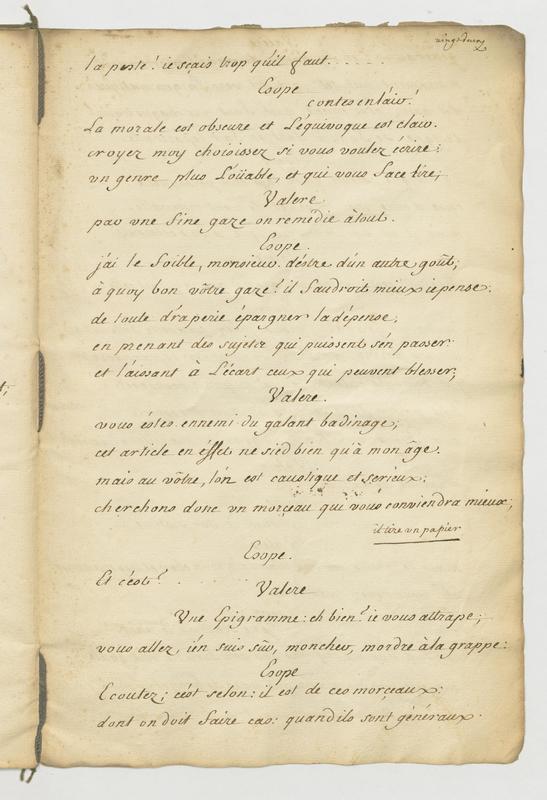 vingt-deux
la peste! ie sçais trop qu'il faut......
Esope
contes en l'air!
La morale est obscure et L'équivoque est clair.
croyez moy choisissez si vous voulez écrire:
un genre plus Loüable, et qui vous face Lire,
Valere
par une fine gaze on remédie à tout.
Esope.
j'ai le foible, monsieur d'éstre d'un autre goût;
à quoy bon vôtre gaze? il faudroit mieux ie pense.
de toute draperie épargner la dépense,
en prenant des sujets qui puissent s'én passer.
et Laissant à L'écart ceux qui peuvent blesser,
Valere.
vous éstes ennemi du galant badinage,
cet article en éffet ne sied bien qu'à mon âge.
mais au vôtre, l'ón est caustique et serieux:
cherchons donc un morçeau qui vous conviendra mieux,
il tire un papier
Esope.
Et c'ést?......
Valere
Une Epigramme: eh bien? ie vous attrape,
vous allez, i'én suis sûr, moncher, mordre à la grappe:
Esope
Ecoutez; c'ést selon: il est de ces morçeaux:
dont on doit faire cas: quand ils sont généraux.